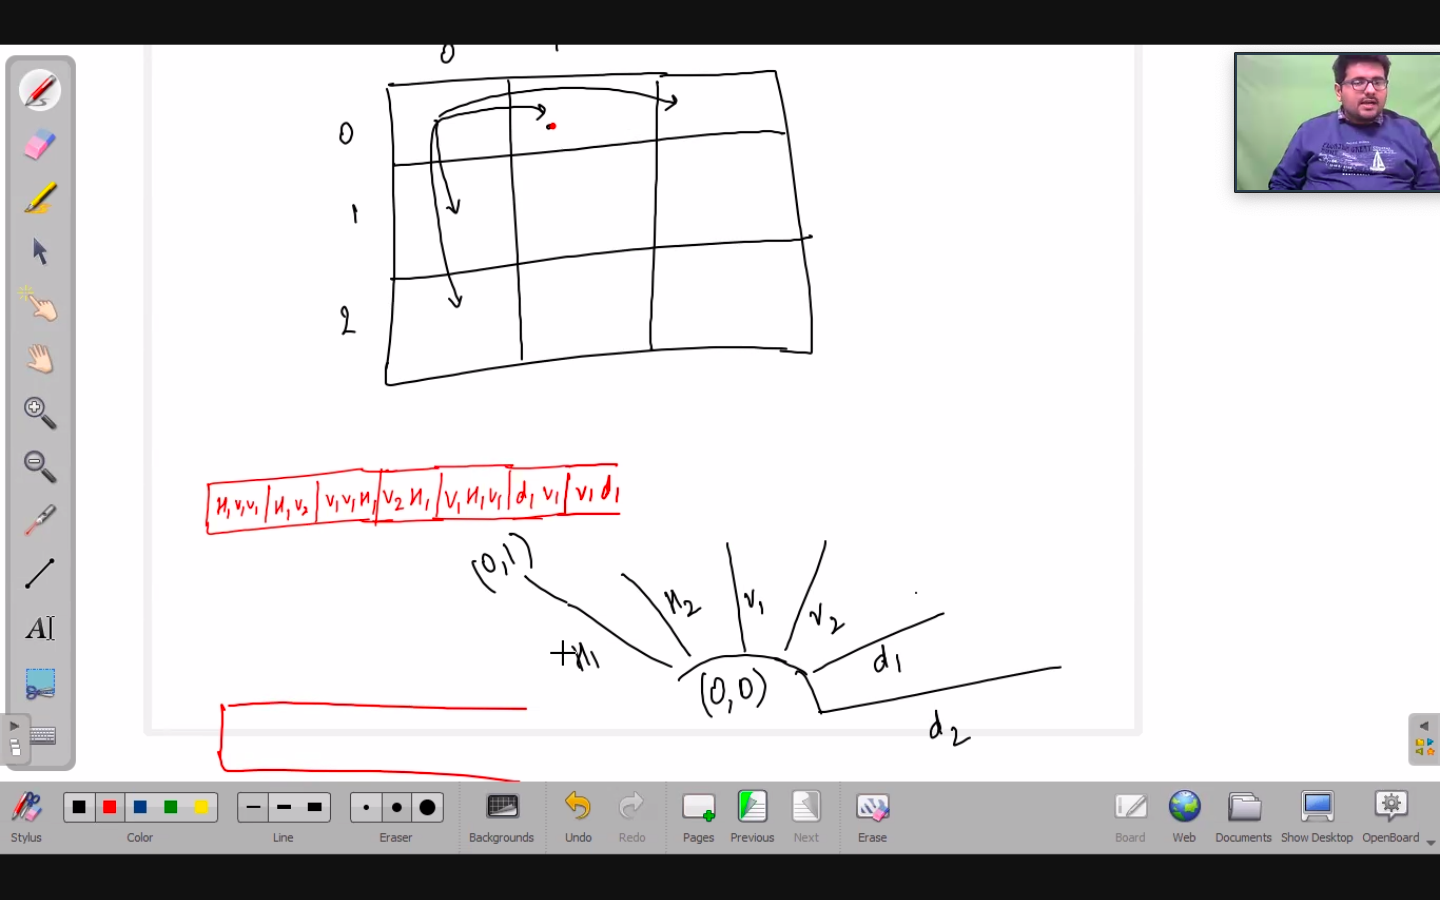 0
0
1
2
H₁ V₁ V₁ | H₁ V₂ | V₁ V₁ H₁ | V₂ H₁ | V₁ H₁ V₁ | d₁ V₁ | V₁ d₁
(0,1)
H₂ V₁ V₂
+H₁ d₁
(0,0)
d₂
A
Stylus Color Line Eraser Backgrounds Undo Redo Pages Previous Next Erase Board Web Documents Show Desktop OpenBoard